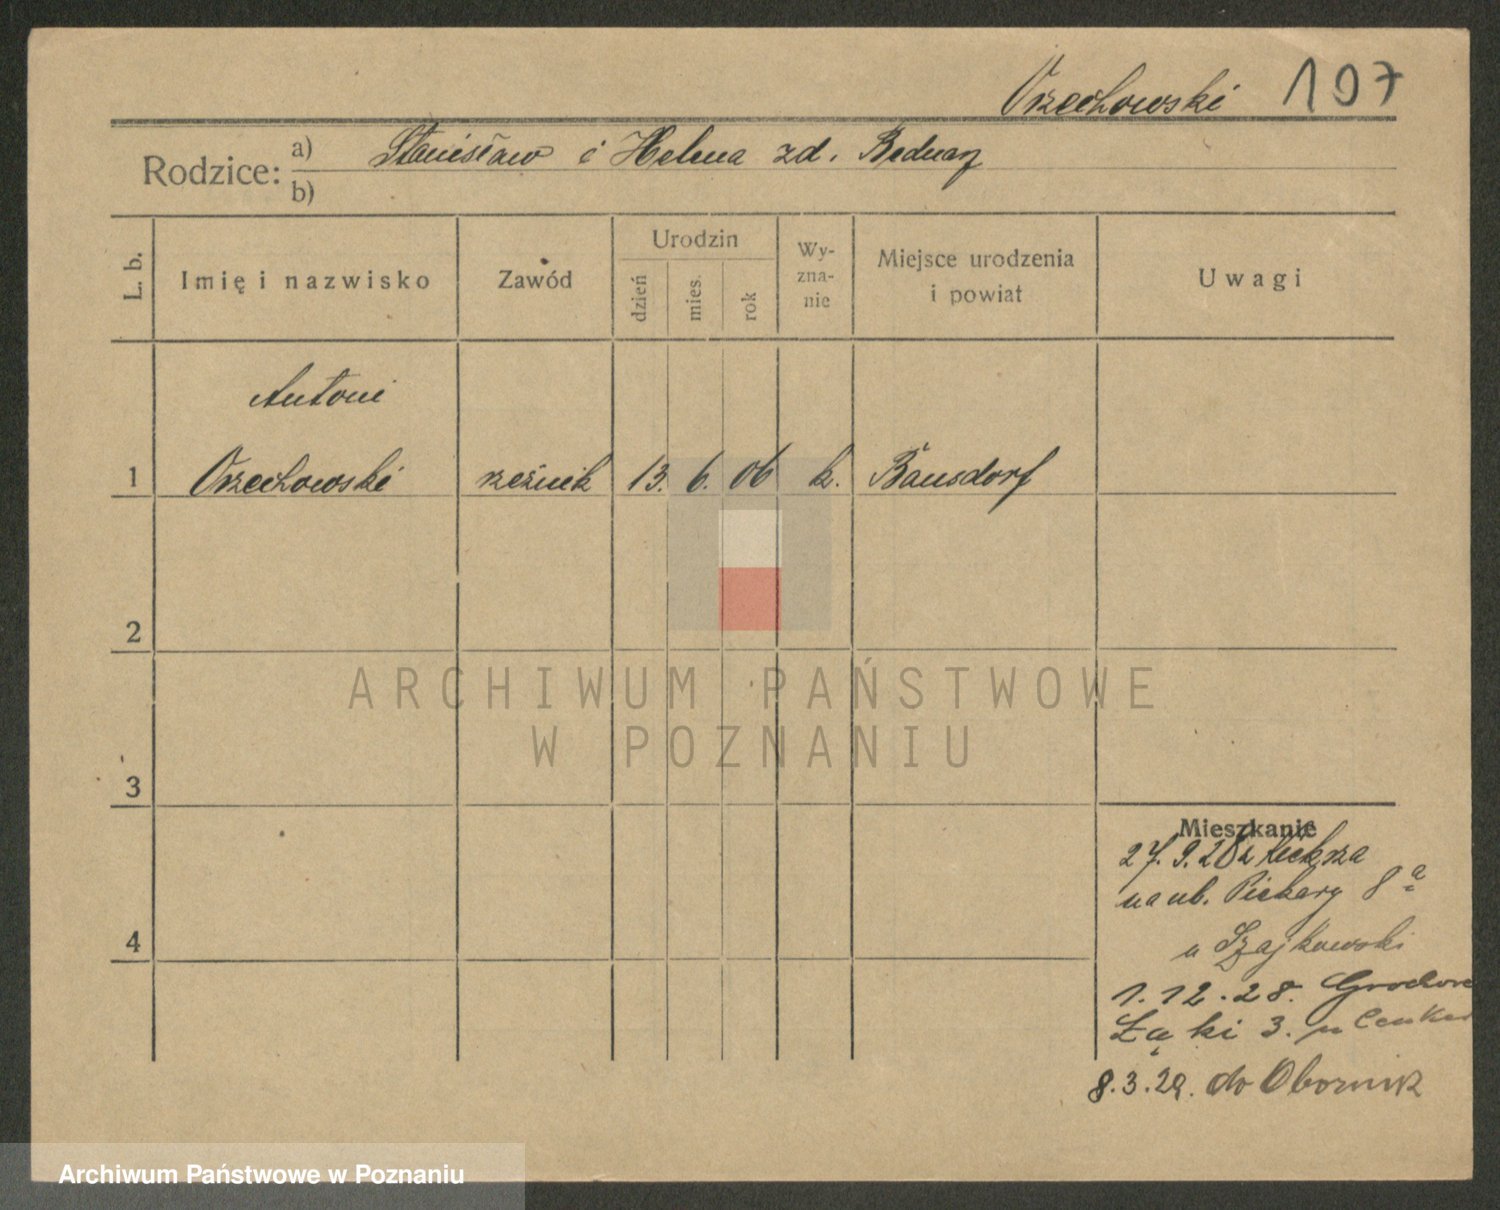 Orzechowski 197
Rodzice: a) Stanisław i Helena zd. Bednarz
b)
L. b.
Imię i nazwisko
Zawód
Urodzin
dzień
mies.
rok
Wy-
zna-
nie
Miejsce urodzenia
i powiat
Uwagi
Antoni
1 Orzechowski rzeźnik 13. 6. 06 k. Bansdorf
2
3
4
Mieszkanie
27. 9. 28 z Kiekrza
na ul. Piekary 8 a
u Szajkowski
1. 12. 28. Grochowe
Łąki 3. u
8. 3. 29. do Obornik
ARCHIWUM PAŃSTWOWE
W POZNANIU
Archiwum Państwowe w Poznaniu